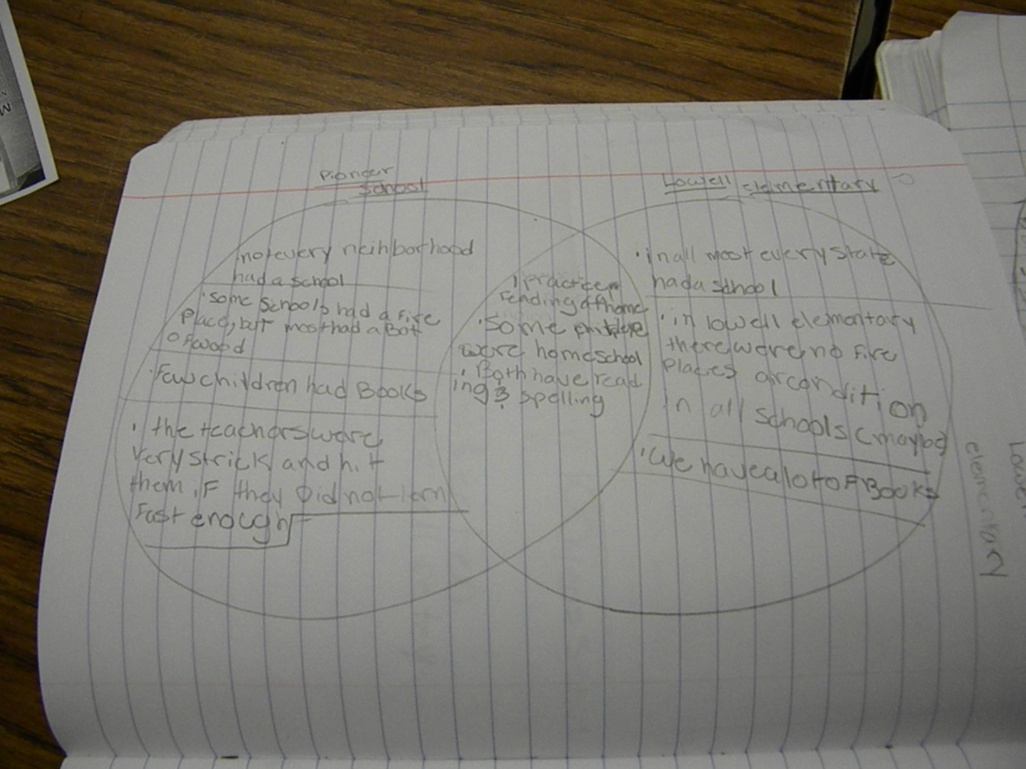 Pioneer
School
Lowell elementary
not every neihborhood
had a school
some schools had a fire
place, but most had a Bot
of wood
Few children had Books
the teachers were
very strick and hit
them if they Did not lern
Fast enough
practice
reading at home
Some
were home school
Both have read
ing & spelling
in all most every state
had a school
in lowell elementary
there were no fire
places arcondition
in all schools (maybe)
we have a lot of Books
Lowell
elementary